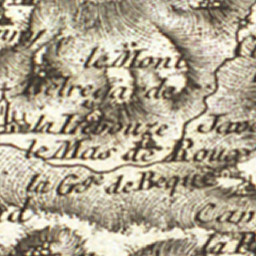 le Mont
Belregarde
la Lebouze
Jav
le Mas de Roug
la Gge. de Beque
Cam
la R